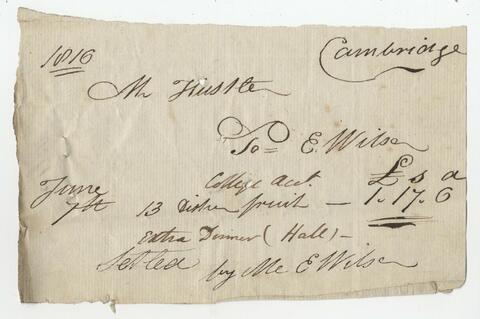 1816 Cambridge
Mr Hustler
To E. Wilson
College Acct. £ s d
June
7th 13 Dishes fruit — 1.17.6
Extra Dinner (Hall) —
Settled by Me E Wilson